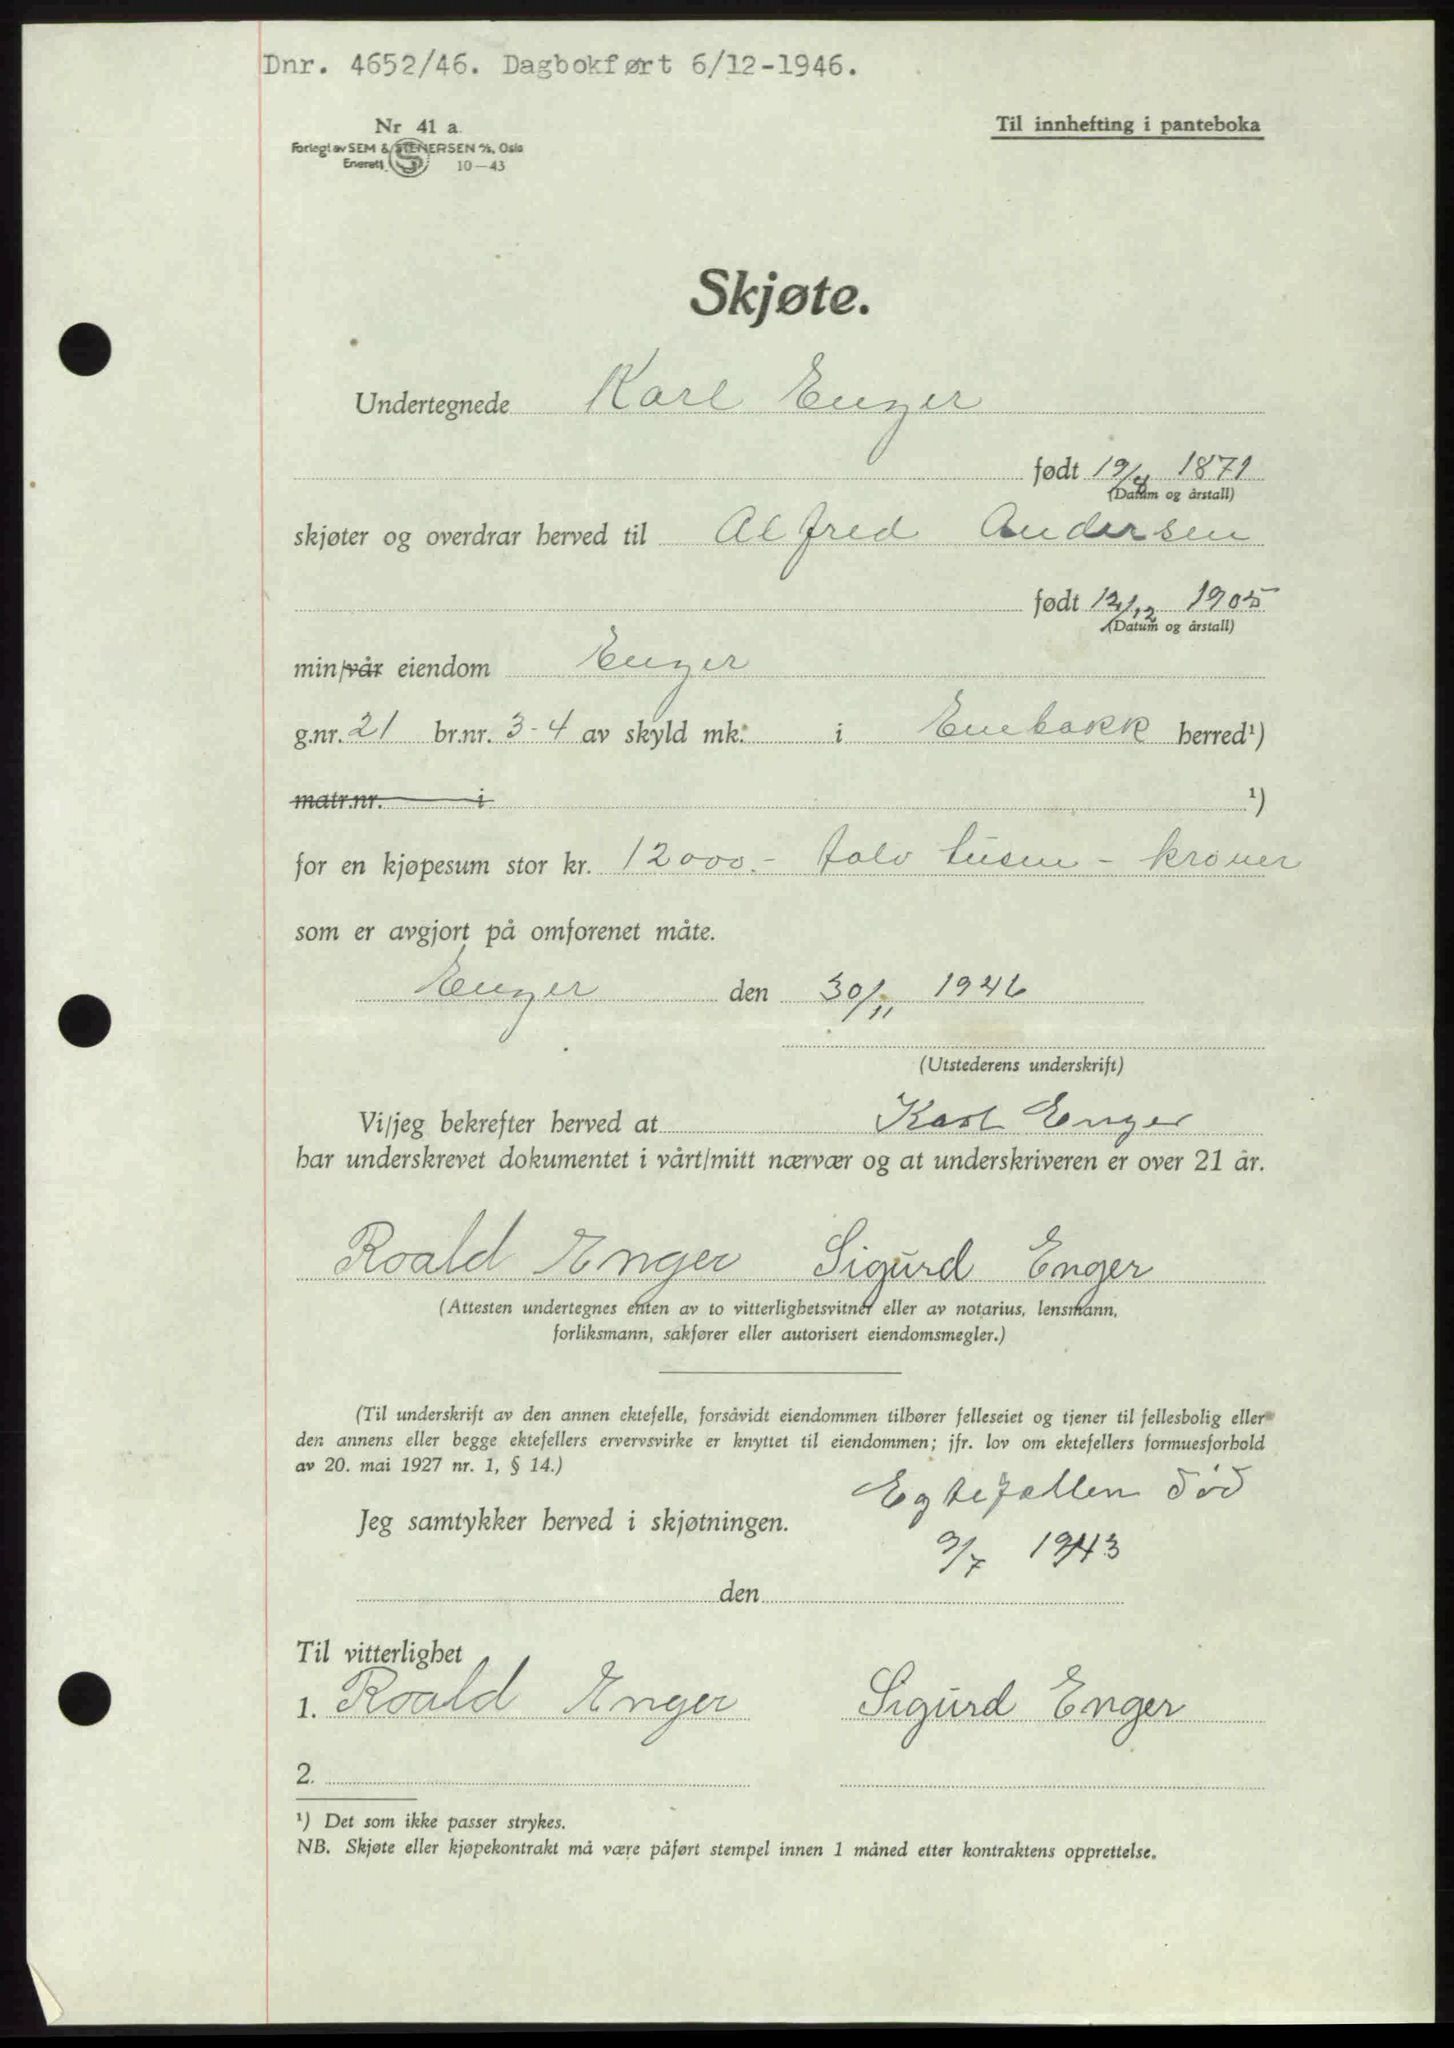 Dnr. 4652/46. Dagbokført 6/12-1946.
Nr 41 a
Forlegt av SEM & STENERSEN A/S, Oslo
Enerett 10-43
Til innhefting i panteboka
Skjøte.
Undertegnede Karl Enger
født 19/8 1871
(Datum og årstall)
skjøter og overdrar herved til Alfred Andersen
født 12/12 1905
(Datum og årstall)
min/vår eiendom Enger
g.nr. 21 br.nr. 3-4 av skyld mk. i Enebakk herred¹)
matr.nr. i ¹)
for en kjøpesum stor kr. 12000.- tolv tusen - kroner
som er avgjort på omforenet måte.
Enger den 30/11 1946
(Utstederens underskrift)
Vi/jeg bekrefter herved at Karl Enger
har underskrevet dokumentet i vårt/mitt nærvær og at underskriveren er over 21 år.
Roald Enger Sigurd Enger
(Attesten undertegnes enten av to vitterlighetsvitner eller av notarius, lensmann,
forliksmann, sakfører eller autorisert eiendomsmegler.)
(Til underskrift av den annen ektefelle, forsåvidt eiendommen tilhører felleseiet og tjener til fellesbolig eller
den annens eller begge ektefellers ervervsvirke er knyttet til eiendommen; jfr. lov om ektefellers formuesforhold
av 20. mai 1927 nr. 1, § 14.)
Egtefellen død
Jeg samtykker herved i skjøtningen.
9/7 1943
den
Til vitterlighet
1. Roald Enger Sigurd Enger
2.
¹) Det som ikke passer strykes.
NB. Skjøte eller kjøpekontrakt må være påført stempel innen 1 måned etter kontraktens opprettelse.